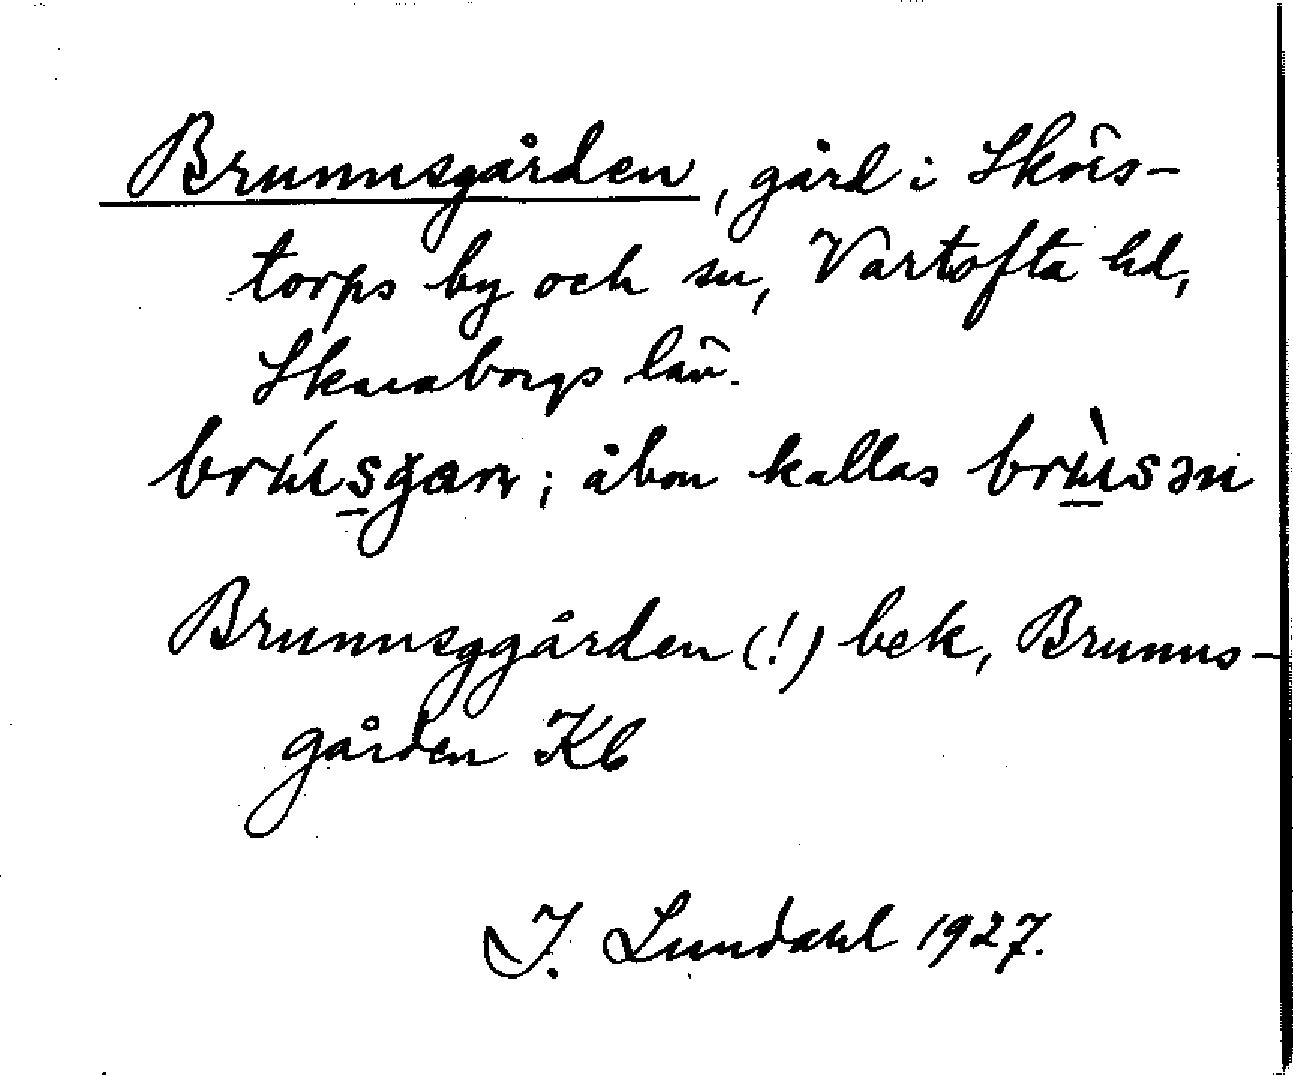 Brunnsgården, gård i Skörs-
torps by och sn, Vartofta hd,
Skaraborgs län.
brúsgaɳ; åbon kallas brùsən
Brunnsggården (!) bek, Brunns-
gården Kb
I. Lundahl 1927.